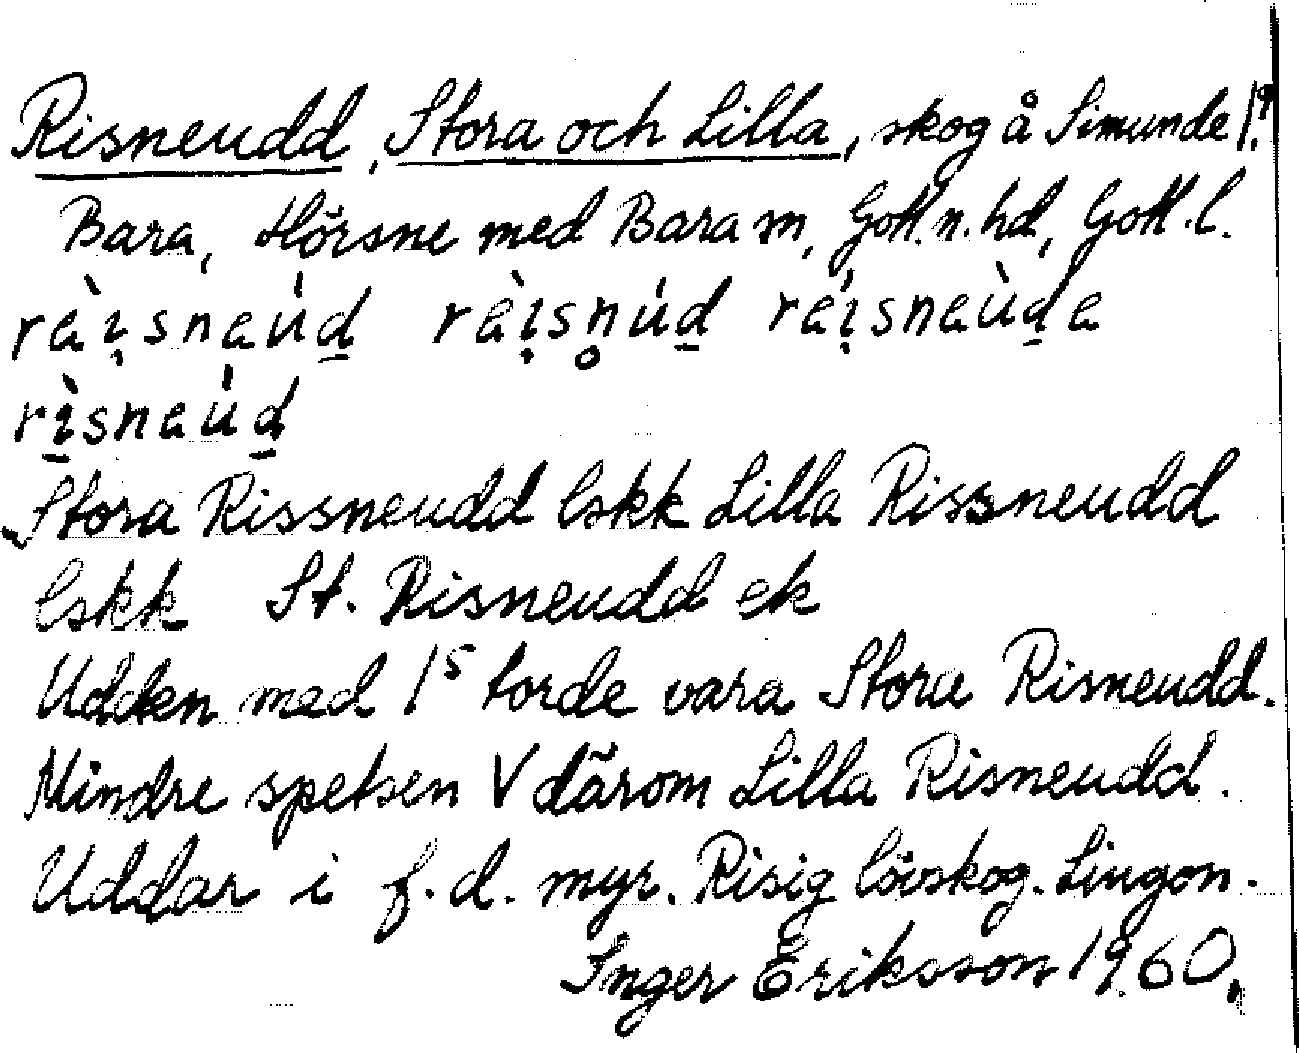 Risneudd, Stora och Lilla, skog å Simunde 1:9
Bara, Hörsne med Bara sn, Gotl. n. hd, Gotl. l.
ràisnaúd ràisnúd ràisnaùda
rìsnaúd
Stora Rissneudd lskk Lilla Rissneudd
lskk St. Risneudd ek
Udden med 1⁵ torde vara Stora Risneudd.
Mindre spetsen V därom Lilla Risneudd.
Uddar i f.d. myr. Risig lövskog. Lingon.
Inger Eriksson 1960.